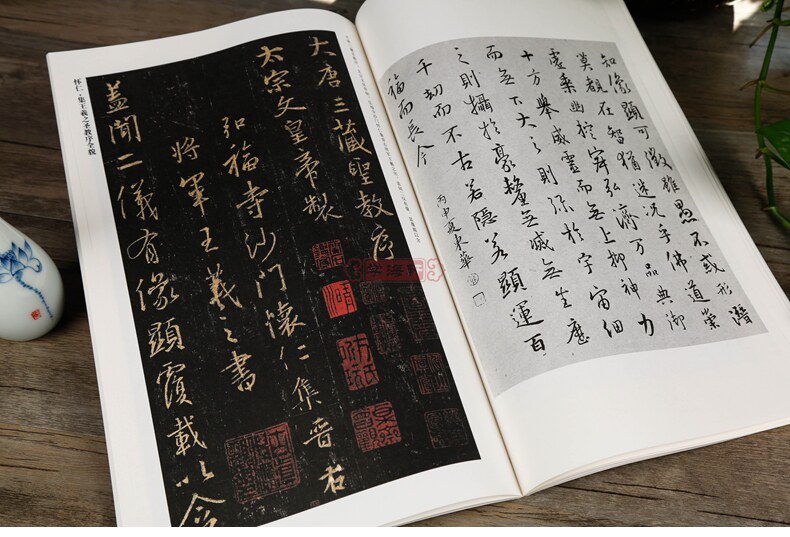 怀仁·集王羲之圣教序全貌
大唐三藏聖教序
太宗文皇帝製
弘福寺沙門懷仁集晉右
將軍王羲之書
蓋聞二儀有像顯覆載以含
知像顯可徵雖愚不或形潛
莫覩在智猶迷況乎佛道崇
虛乘幽控寂弘濟万品典御
十方舉威靈而無上抑神力
而無下大之則弥於宇宙細
之則攝於豪釐無滅無生歷
千劫而不古若隱若顯運百
福而長今
丙申夏